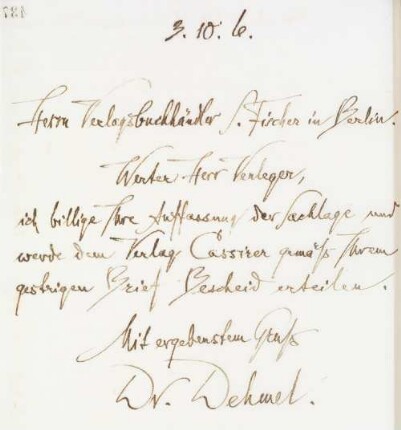 3. 10. 6.
Herrn Verlagsbuchhändler S. Fischer in Berlin.
Werter Herr Verleger,
ich billige Ihre Auffassung der Sachlage und
werde dem Verlag Cassirer gemäß Ihrem
gestrigen Brief Bescheid erteilen.
Mit ergebenstem Gruß
Dr. Dehmel.